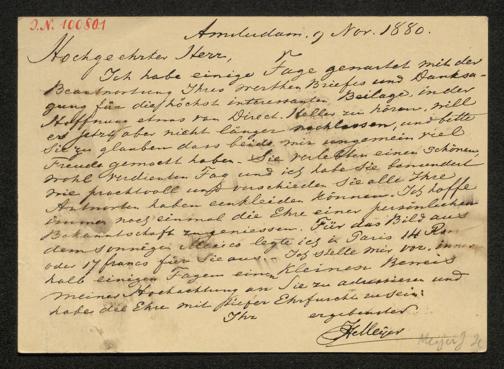 J.N. 100801
Amsterdam. 9 Nov. 1880.
Hochgeehrter Herr,
Ich habe einige Tage gewartet mit der
Beantwortung Ihres werthen Briefes und Danksa-
gung für die höchst interessanten Beilage, in der
Hoffnung etwas von Direct. zu hören, will
es jetzt aber nicht länger nachlassen, und bitte
Sie zu glauben dass beide mir ungemein viel
Freude gemacht haben. Sie verlebten einen schönen
wohl verdienten Tag und ich habe Sie bewundert
wie prachtvoll und verschieden Sie alle Ihre
Antworten haben einkleiden können. Ich hoffe
immer noch einmal die Ehre einer persönlichen
Bekanntschaft zu geniessen. Für das Bild aus
dem sonnigen Mexico legte ich à Paris 14 Rm
oder 17 francs für Sie aus. Ich stelle mir vor, inner-
halb einigen Tagen einen kleinen Beweis
meiner Hochachtung an Sie zu adressiren und
habe die Ehre mit tiefer Ehrfurcht zu sein:
Ihr ergebenster
Meijer